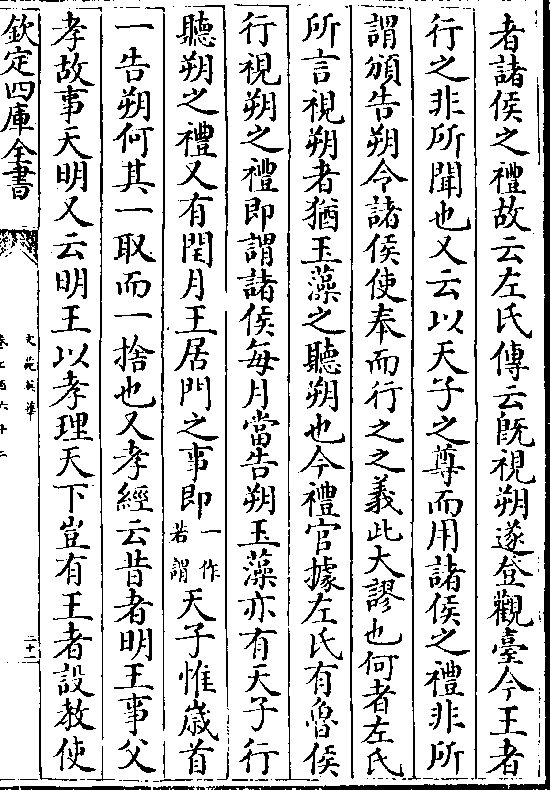 者諸侯之禮故云左氏傳云既視朔遂登觀臺今王者
行之非所聞也又云以天子之尊而用諸侯之禮非所
謂頒告朔令諸侯使奉而行之之義此大謬也何者左氏
所言視朔者猶玉藻之聽朔也今禮官據左氏有魯侯
行視朔之禮即謂諸侯每月當告朔玉藻亦有天子行
聽朔之禮又有閏月王居門之事即一作若謂天子惟歳首
一告朔何其一取而一捨也又孝經云昔者明王事父
孝故事天明又云明王以孝理天下豈有王者設教使
欽定四庫全書
文苑英華
二十一